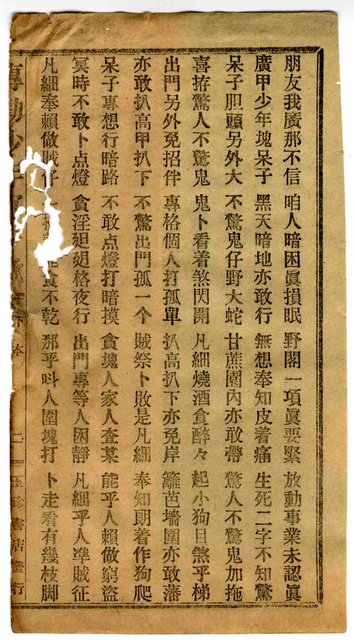 朋友我廣那不信 咱人暗困眞損眠 野閣一項眞要緊 放動事業未認眞
廣甲少年塊呆子 黑天暗地亦敢行 無想奉知皮着痛 生死二字不知驚
呆子胆頭另外大 不驚鬼仔野大蛇 甘蔗園內亦敢帶 驚人不驚鬼加拖
喜拵驚人不驚鬼 鬼卜看着煞閃開 凡細燒酒食醉々 起小狗目煞乎梯
出門另外免招伴 專格個人打孤單 扒高扒下亦免岸 籬芭墻圍亦敢藩
亦敢扒高甲扒下 不驚出門孤一个 賊祭卜敗是凡細 奉知朗着作狗爬
呆子專想行暗路 不敢点燈打暗摸 貪塊人家人查某 能乎人賴做窮盜
冥時不敢卜点燈 貪淫廻廻格夜行 出門專等人困靜 凡細乎人準賊征
凡細奉賴做賊 食不乾 那乎呌人圍塊打 卜走看有幾枝脚
專勸少 下本 二 玉珍書店發行